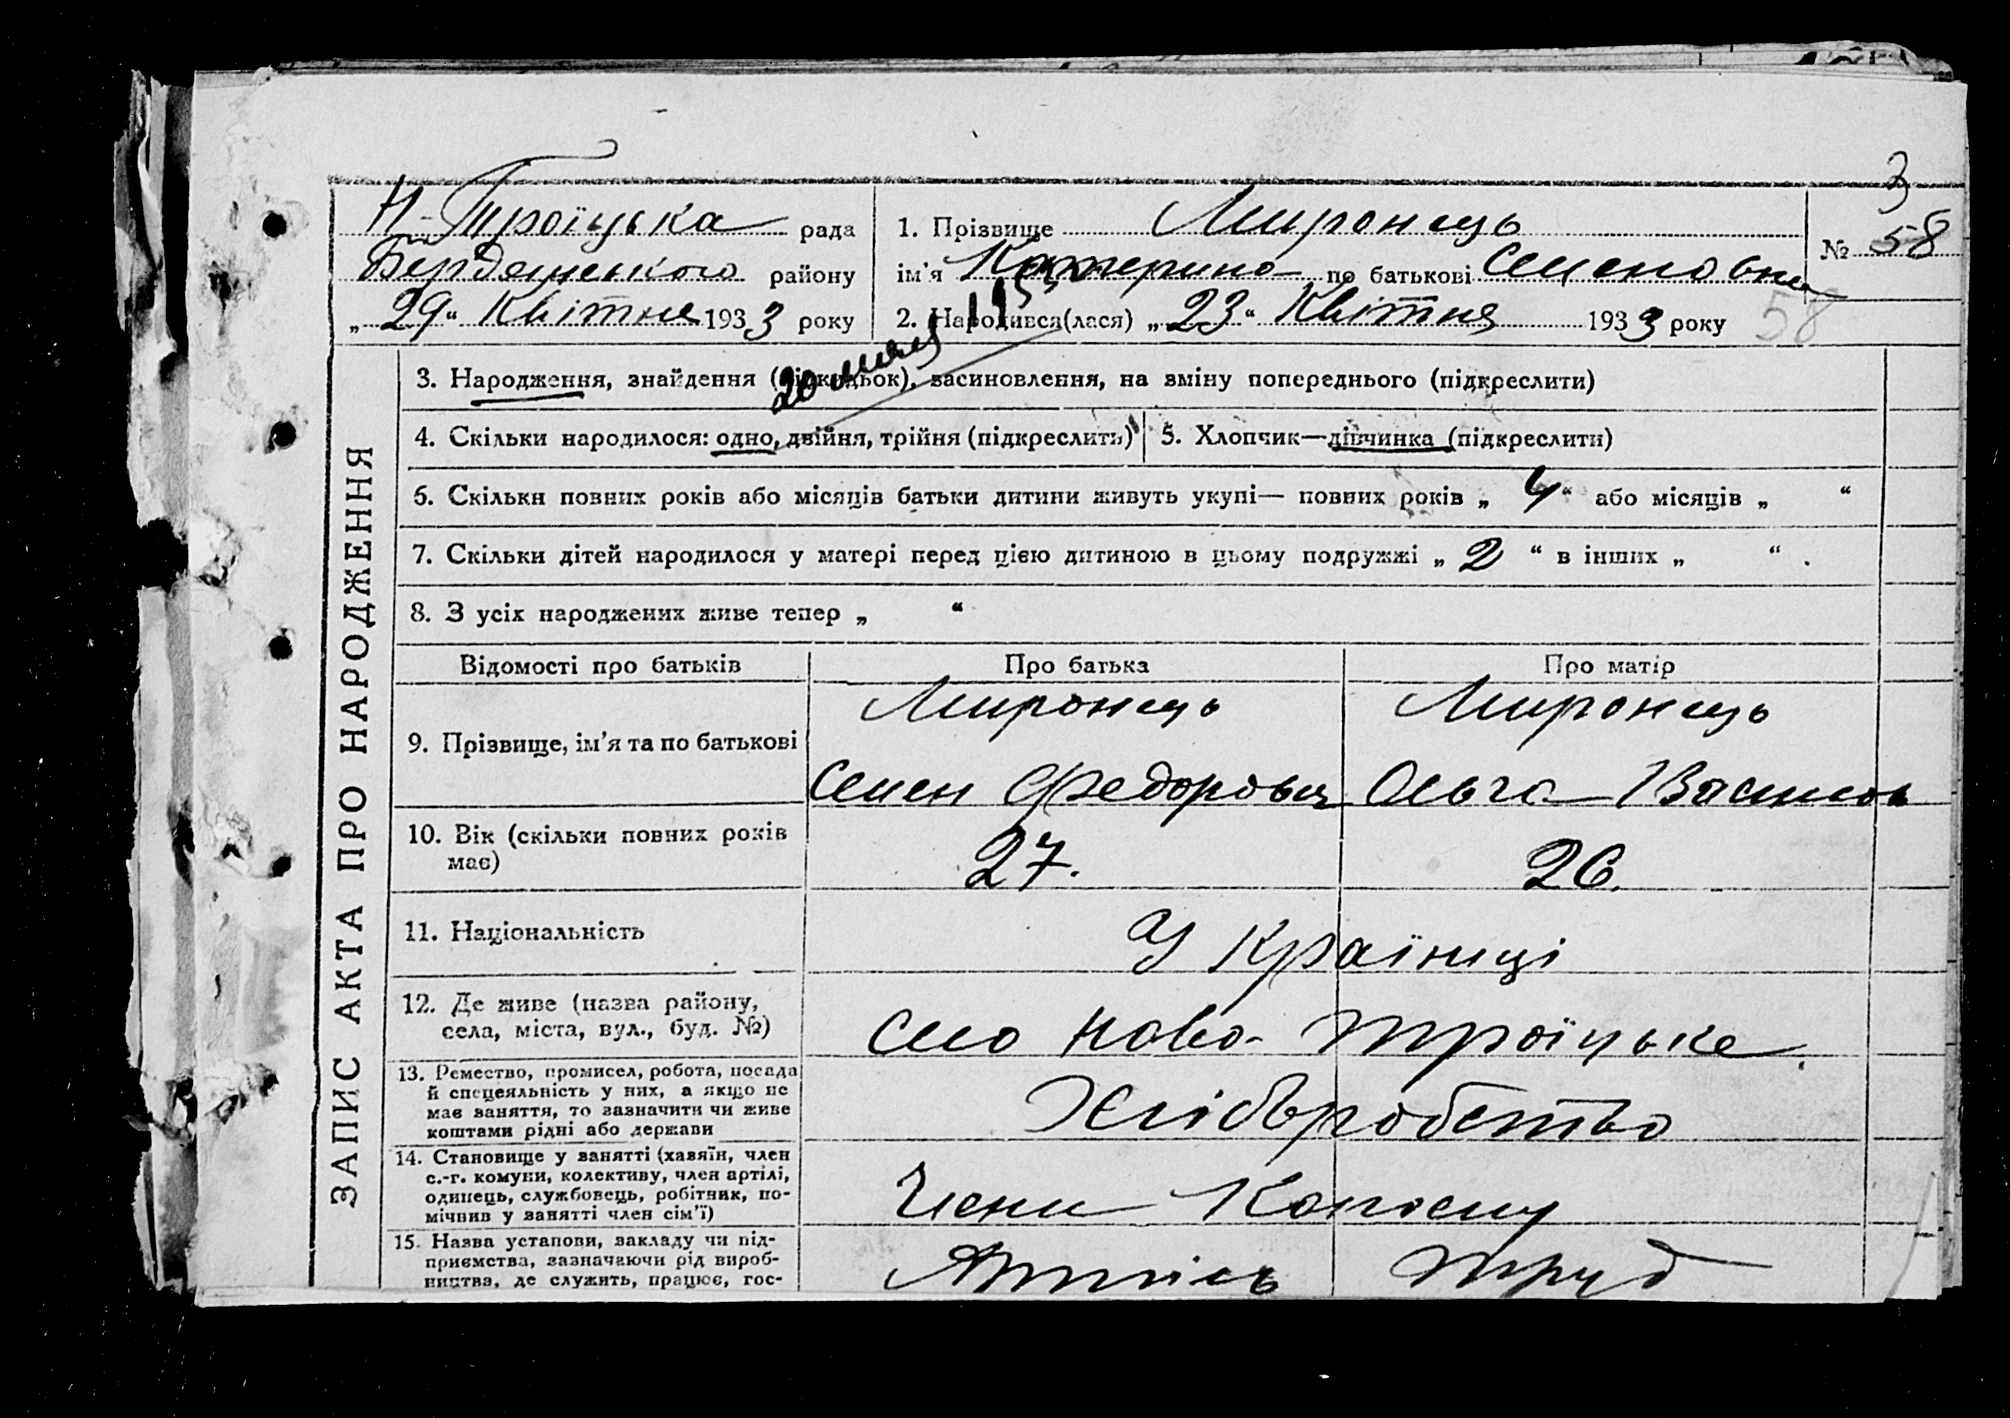 3
Н-Троїцька рада
1. Прізвище Миронець
№ 58
Бердянського району
ім'я Катерина по батькові Семеновна
„ 29 “ Квітня 1933 року
2. Народився(лася) „ 23 “ Квітня 1933 року
58
20 мая
3. Народження, знайдення (підкидьок), васиновлення, на зміну попереднього (підкреслити)
4. Скільки народилося: одно, двійня, трійня (підкреслить)
5. Хлопчик—дівчинка (підкреслити)
6. Скільки повних років або місяців батьки дитини живуть укупі— повних років „ 4 “ або місяців „ “
7. Скільки дітей народилося у матері перед цією дитиною в цьому подружжі „ 2 “ в інших „ “ .
8. З усіх народжених живе тепер „ “
ЗАПИС АКТА ПРО НАРОДЖЕННЯ
Відомості про батьків
Про батька
Про матір
9. Прізвище, ім'я та по батькові
Миронець
Семен Федорович
Миронець
Ольга Василов
10. Вік (скільки повних років
має)
27.
26.
11. Національність
Українці
12. Де живе (назва району,
села, міста, вул., буд. №)
село Ново-Троїцьке
13. Ремество, промисел, робота, посада
й спецеяльність у них, а якщо не
має заняття, то зазначити чи живе
коштами рідні або держави
Хліборобство
14. Становище у занятті (хазяїн, член
с.-г. комуни, колективу, член артілі,
одинець, службовець, робітник, по-
мічник у занятті член сім'ї)
Члени Колгоспу
15. Назва установи, закладу чи під-
приємства, зазначаючи рід вироб-
ництва, де служить, працює, гос-
Артіль Труд